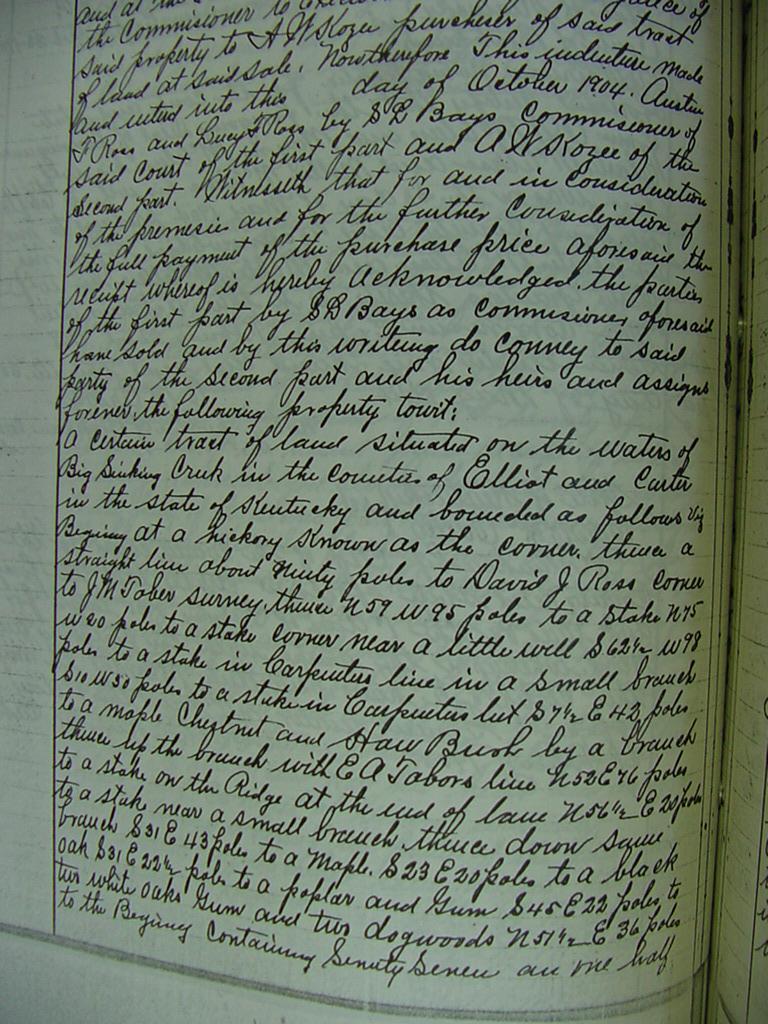 and at the
the Commissioner to
said property to A W Kozee purcheser of said trast
of land at said sale. Nowtherefore This indenture made
and uterd into this day of October 1904. Austin
F Ross and Lucey F Ross by S B Bays Commisioner of
said Court of the first part and A W Kozee of the
Second part. Witnesseth that for and in consideration
of the premesies and for the further Consideration of
the full payment of the purchase price aforesaid the
receipt whereof is hereby Acknowledged. the parties
of the first part by S B Bays as commisioner aforesaid
have sold and by this writeing do conney to said
party of the second part and his heirs and assigns
forever. the following property towit:
A certain tract of land situated on the waters of
Big Sinking Creek in the counties of Elliot and Carter
in the state of Kentucky and bounded as follows viz
Begining at a hickory Known as the corner. thence a
straight line about Ninty poles to David J Ross corner
to J M Tober survey, thence N 59 W 95 poles to a stake N 75
W 20 poles to a stake corner near a little well S 62½ W 98
poles to a stake in Carpenters line in a small branch
S 10 W 50 poles to a stake in Carpenters S 7½ E 42 poles
to a maple Chestnut and Haw Bush by a branch
thence up the branch with E A Tabors line N 52 E 76 poles
to a stake on the Ridge at the end of lane N 56½ E 20 poles
to a stake near a small branch, thence down same
branch S 31 E 43 poles to a Maple. S 23 E 20 poles to a black
oak S 31 E 22½ poles to a poplar and Gum S 45 E 22 poles to
two white oaks Gum and two dogwoods N 51½ E 36 poles
to the Begining Containing Senuty Seneu an one half